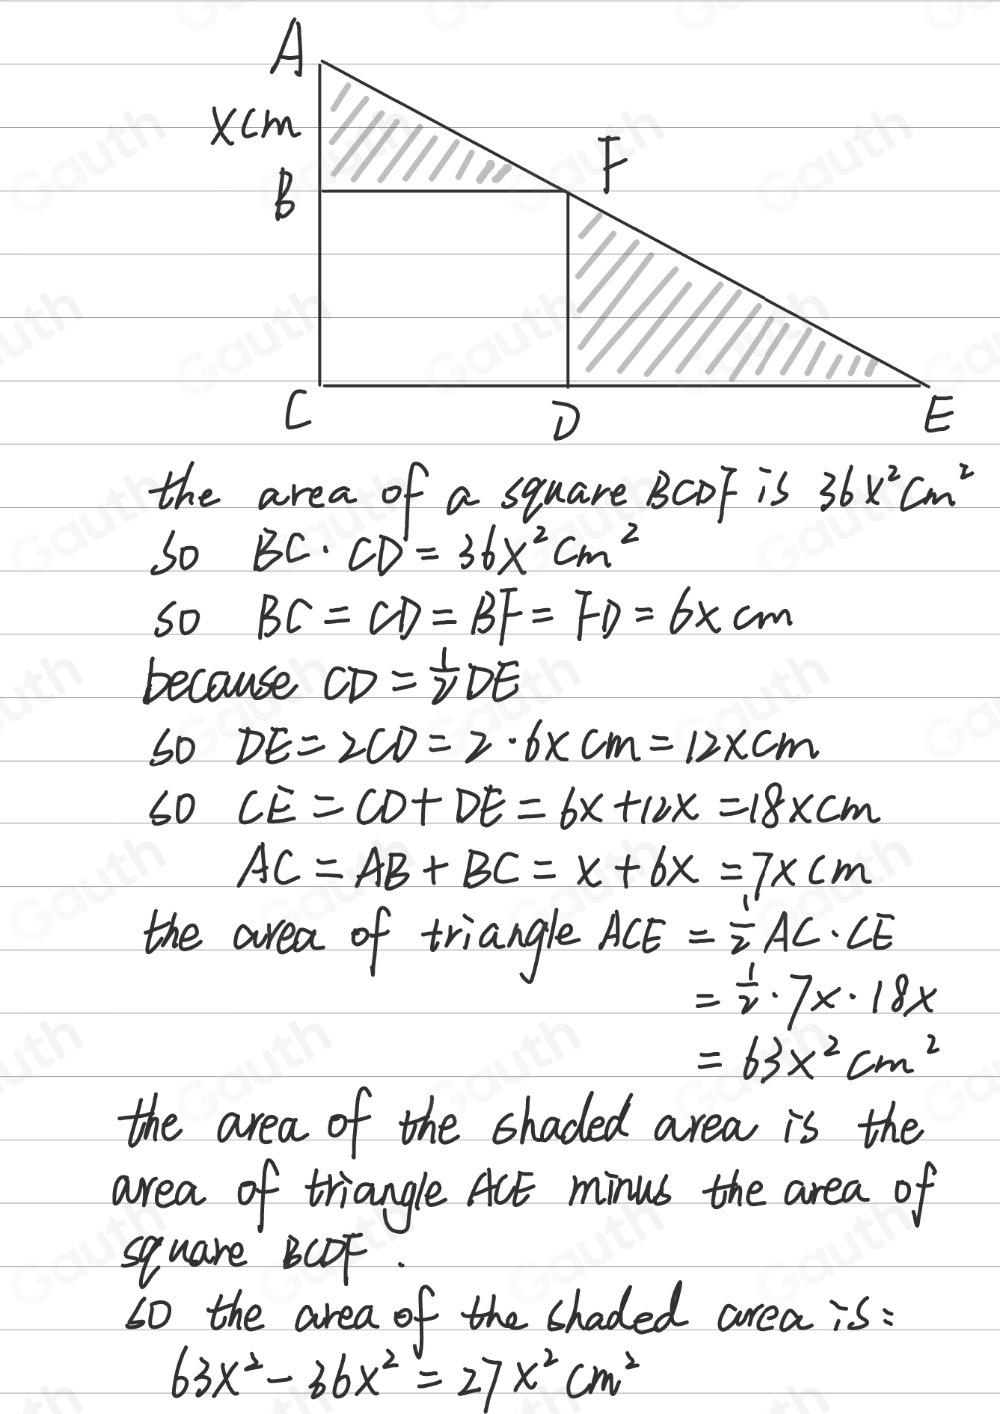 A
xcm
F
B
C
D
E
the area of a square BCDF is 36x²cm²
so BC·CD = 36x²cm²
so BC = CD = BF = FD = 6x cm
because CD = 1/2 DE
so DE = 2CD = 2·6x cm = 12x cm
so CE = CD + DE = 6x + 12x = 18x cm
AC = AB + BC = x + 6x = 7x cm
the area of triangle ACE = 1/2 AC·CE
= 1/2 · 7x · 18x
= 63x² cm²
the area of the shaded area is the
area of triangle ACE minus the area of
square BCDF.
so the area of the shaded area is:
63x² - 36x² = 27x² cm²